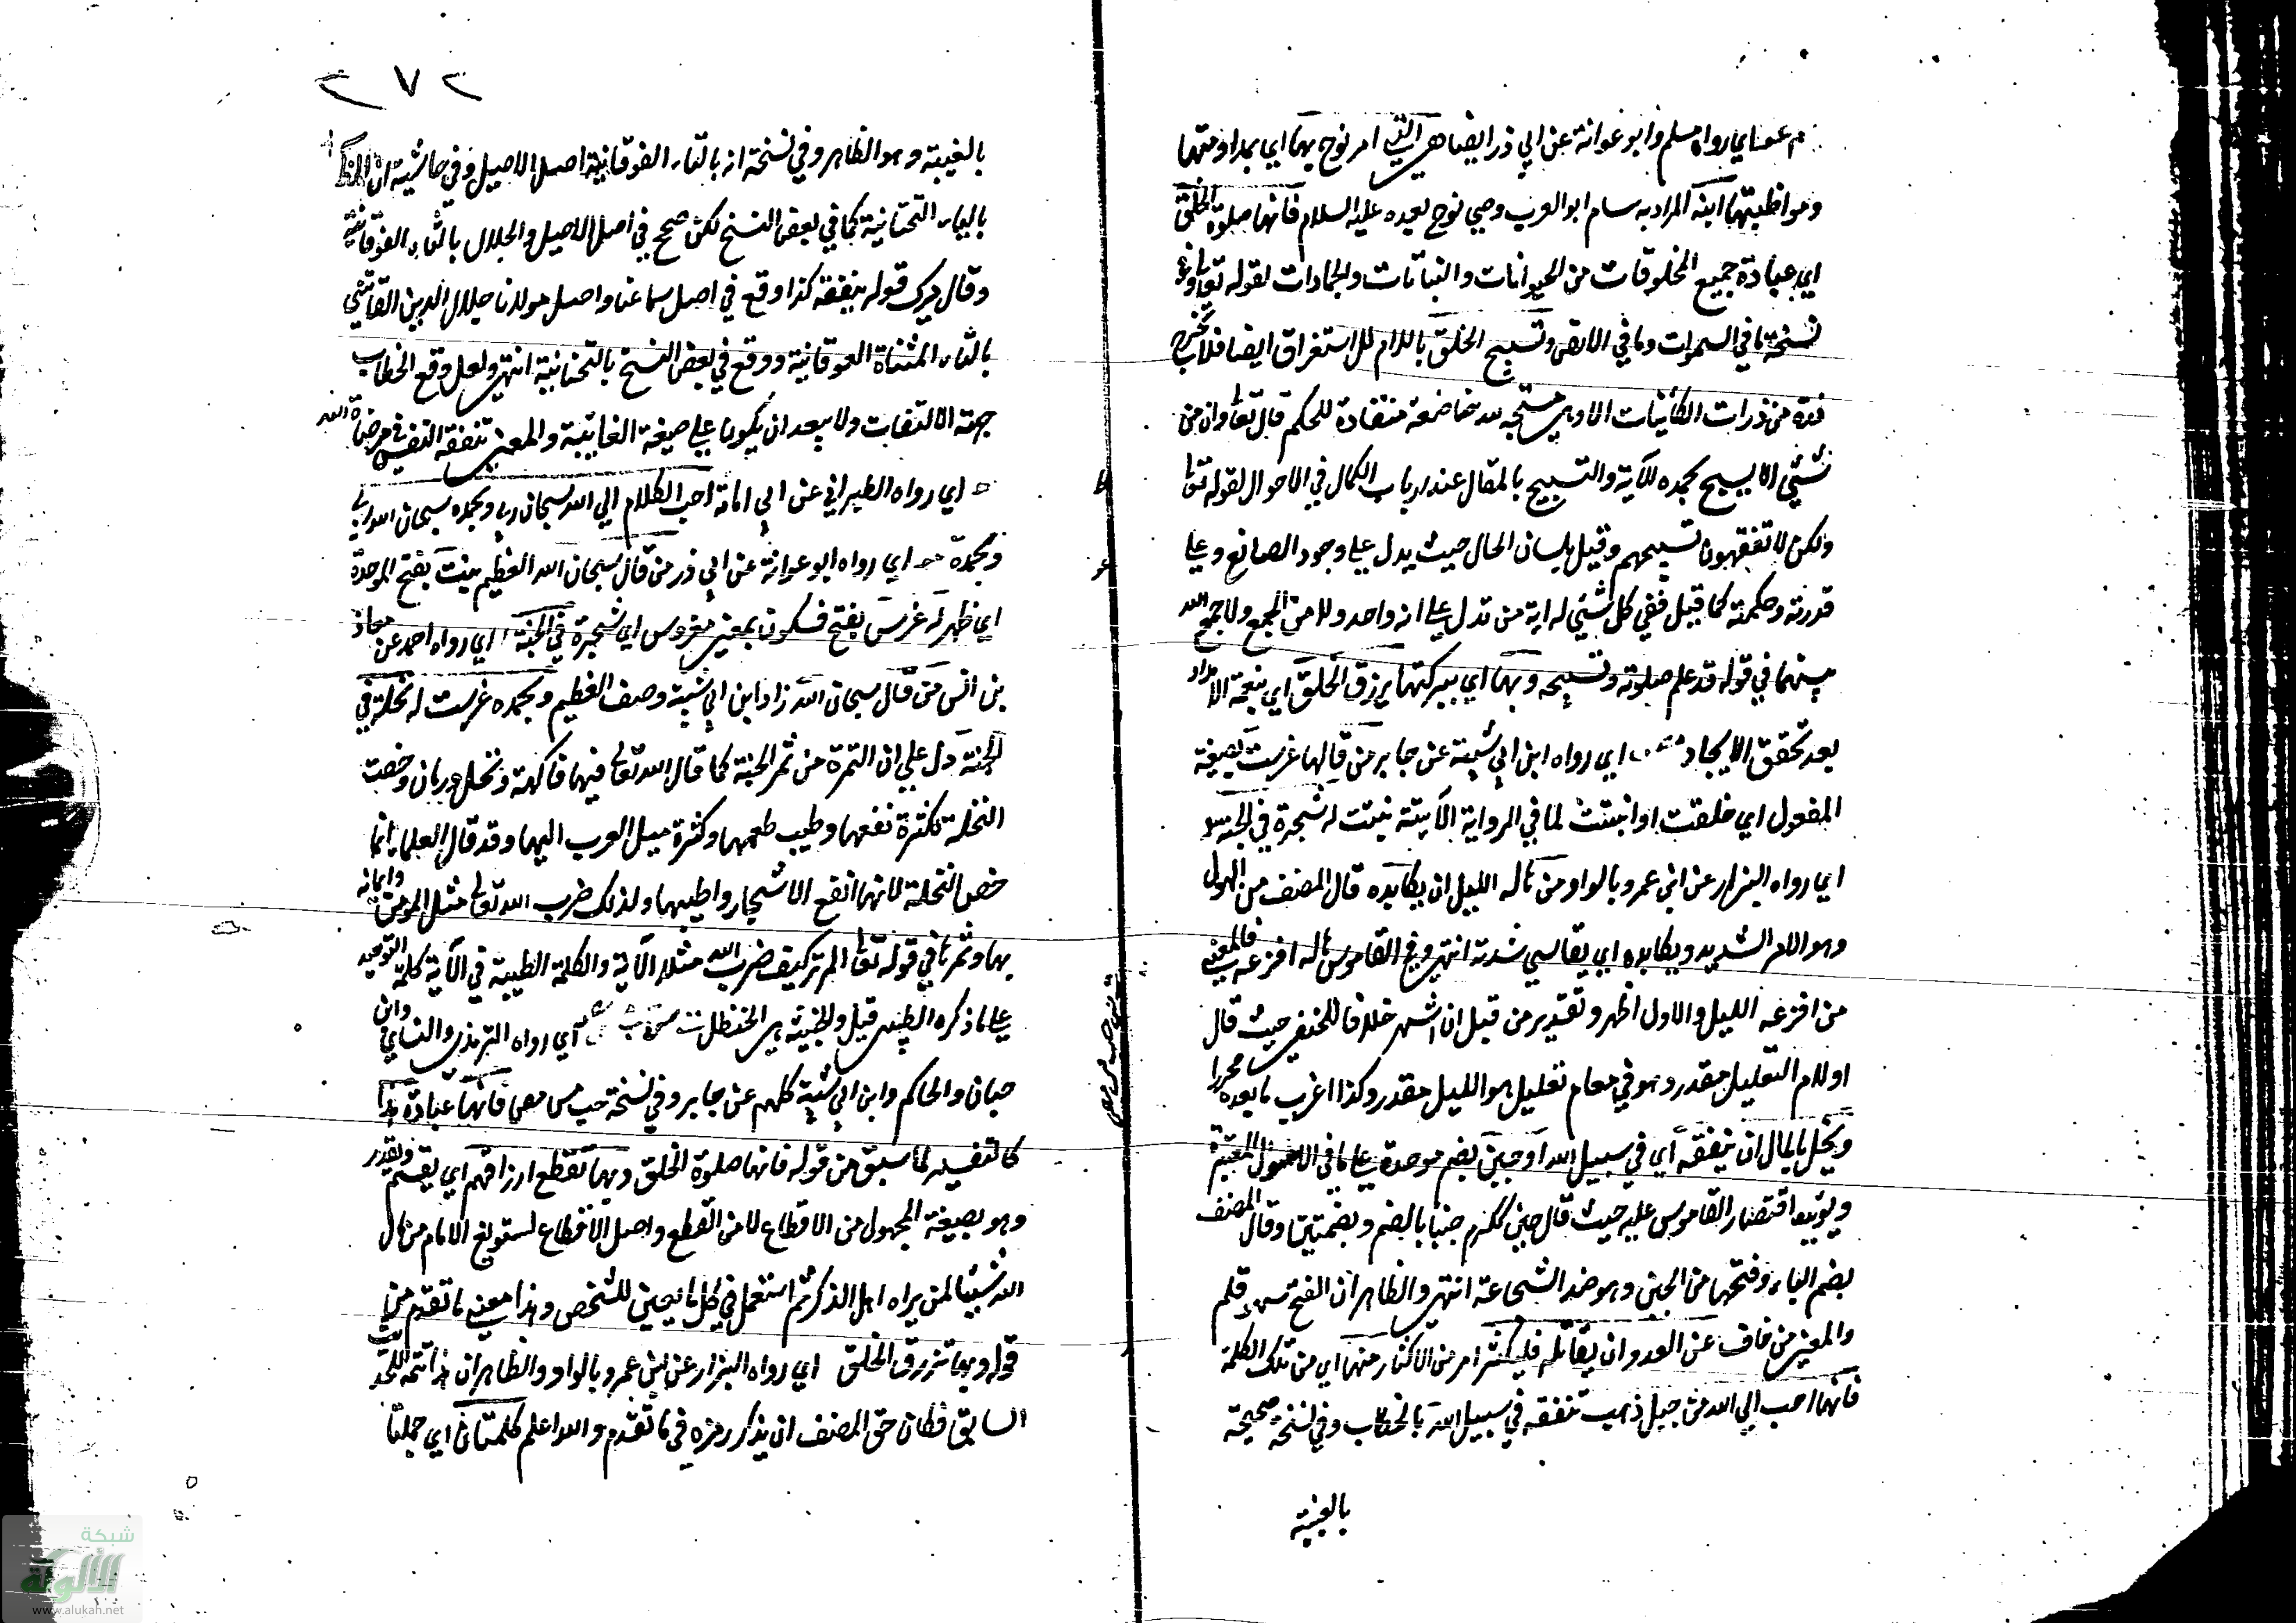 م عو اي رواه مسلم وابو عوانة عن ابي ذر ايضا هي التي امر نوح بها اي بمداومتها
ومواظبتها ابنه المراد به سام ابو العرب وصي نوح بعده عليه السلام فانها صلوة الخلق
اي عبادة جميع المخلوقات من الحيوانات والنباتات والجمادات لقوله تعا
نسخة ما في السموات وما في الارض وتسبيح الخلق باللام للاستغراق ايضا فلا يخرج
ذرة من ذرات الكائنات الا وهي مسبحة لله خاضعة منقادة للحكم قال تعا وان من
شيئ الا يسبح بحمده الآية والتسبيح بالمقال عند ارباب الكمال في الاحوال لقوله تعا
ولكن لا تفقهون تسبيحهم وقيل بلسان الحال حيث يدل علي وجود الصانع وعلي
قدرته وحكمته كما قيل ففي كل شيئ له اية من تدل علي انه واحد ولا من الجمع ولا جمع الله
بينهما في قوله قد علم صلوته وتسبيحه وبها اي ببركتها يرزق الخلق اي بنعمة الامداد
بعد تحقق الايجاد مص اي رواه ابن ابي شيبة عن جابر من قالها غرست بصيغة
المفعول اي خلقت او انبتت لما في الرواية الآتية نبتت له شجرة في الجنة ر
اي رواه البزار عن ابن عمرو بالواو من هاله الليل ان يكابده قال المصنف من الهول
وهو الامر الشديد ويكابده اي يقاسي شدته انتهي وفي القاموس هاله افزعه فالمعني
من افزعه الليل والاول اظهر وتقدير من قبل ان اشهر خلافا للحنفي حيث قال
او لام التعليل مقدر وهو في معام تعليل هو الليل مقدر وكذا اغرب ما بعده محررا
وبخل بالمال ان ينفقه اي في سبيل الله او جبن بضم موحدة علي ما في الاصول المعتبرة
ويؤيده اقتصار القاموس عليه حيث قال جبن ككرم جبنا بالضم وبضمتين وقال المصنف
بضم الباء وفتحها من الجبن وهو ضد الشجاعة انتهي والظاهر ان الفتح سهو قلم
والمعني من خاف عن العدو ان يقاتله فليكثر امر من الاكثار منها اي من تلك الكلمة
فانها احب الي الله من جبل ذهب تنفقه في سبيل الله بالخطاب وفي نسخة صحيحة
بالغيبة
٢٧٢
بالغيبة وهو الظاهر وفي نسخة انه بالتاء الفوقانية اصل الاصيل وفي حاشية ان
بالياء التحتانية كما في بعض النسخ لكن صحح في اصل الاصيل والجلال بالتاء الفوقانية
وقال ميرك قوله ينفقه كذا وقع في اصل سماعنا واصل مولانا جلال الدين القائني
بالتاء المثناة الفوقانية ووقع في بعض النسخ بالتحتانية انتهي ولعل وقع الخطاب
جهة الالتفات ولا يبعد ان يكون علي صيغة الغائبة والمعني تنفقه النفس في مرضاة الله
ط اي رواه الطبراني عن ابي امامة احب الكلام الي الله سبحان ربي وبحمده سبحان ربي
وبحمده عو اي رواه ابو عوانة عن ابي ذر من قال سبحان الله العظيم نبت بفتح الموحدة
اي ظهر له غرس بفتح فسكون بمعني مغروس اي شجرة في الجنة ا اي رواه احمد عن معاذ
بن انس من قال سبحان الله زاد ابن ابي شيبة وصف العظيم وبحمده غرست له نخلة في
الجنة دل علي ان التمرة من ثمر الجنة كما قال الله تعالي فيهما فاكهة ونخل ورمان وخصت
النخلة لكثرة نفعها وطيب طعمها وكثرة ميل العرب اليها وقد قال العلماء انما
خص النخلة لانها انفع الاشجار واطيبها ولذلك ضرب الله تعالي مثل المؤمن وايمانه
بها وثمرها في قوله تعا الم تر كيف ضرب الله مثلا الآية والكلمة الطيبة في الآية كلمة التوحيد
علي ما ذكره الطيبي قيل والخبيثة هي الحنظل ت س حب مس مص اي رواه الترمذي والنسائي وابن
حبان والحاكم وابن ابي شيبة كلهم عن جابر وفي نسخة حب مس مص فانها عبادة
كالتفسير لما سبق من قوله فانها صلوة الخلق وبها تقطع ارزاقهم اي يقسم ويقدر
وهو بصيغة المجهول من الاقطاع لا من القطع واصل الاقطاع تسويغ الامام من مال
الله شيئا لمن يراه اهل الذكر ثم استعمل في كل ما يعين للشخص وهذا معني ما تقدم من
قوله وبها ترزق الخلق اي رواه البزار عن ابن عمرو بالواو والظاهر ان هذا تتمة للحديث
السابق فكان حق المصنف ان يذكر رمزه في ما تقدم والله اعلم كلمتان اي جملتا
شبكة
الألوكة
www.alukah.net